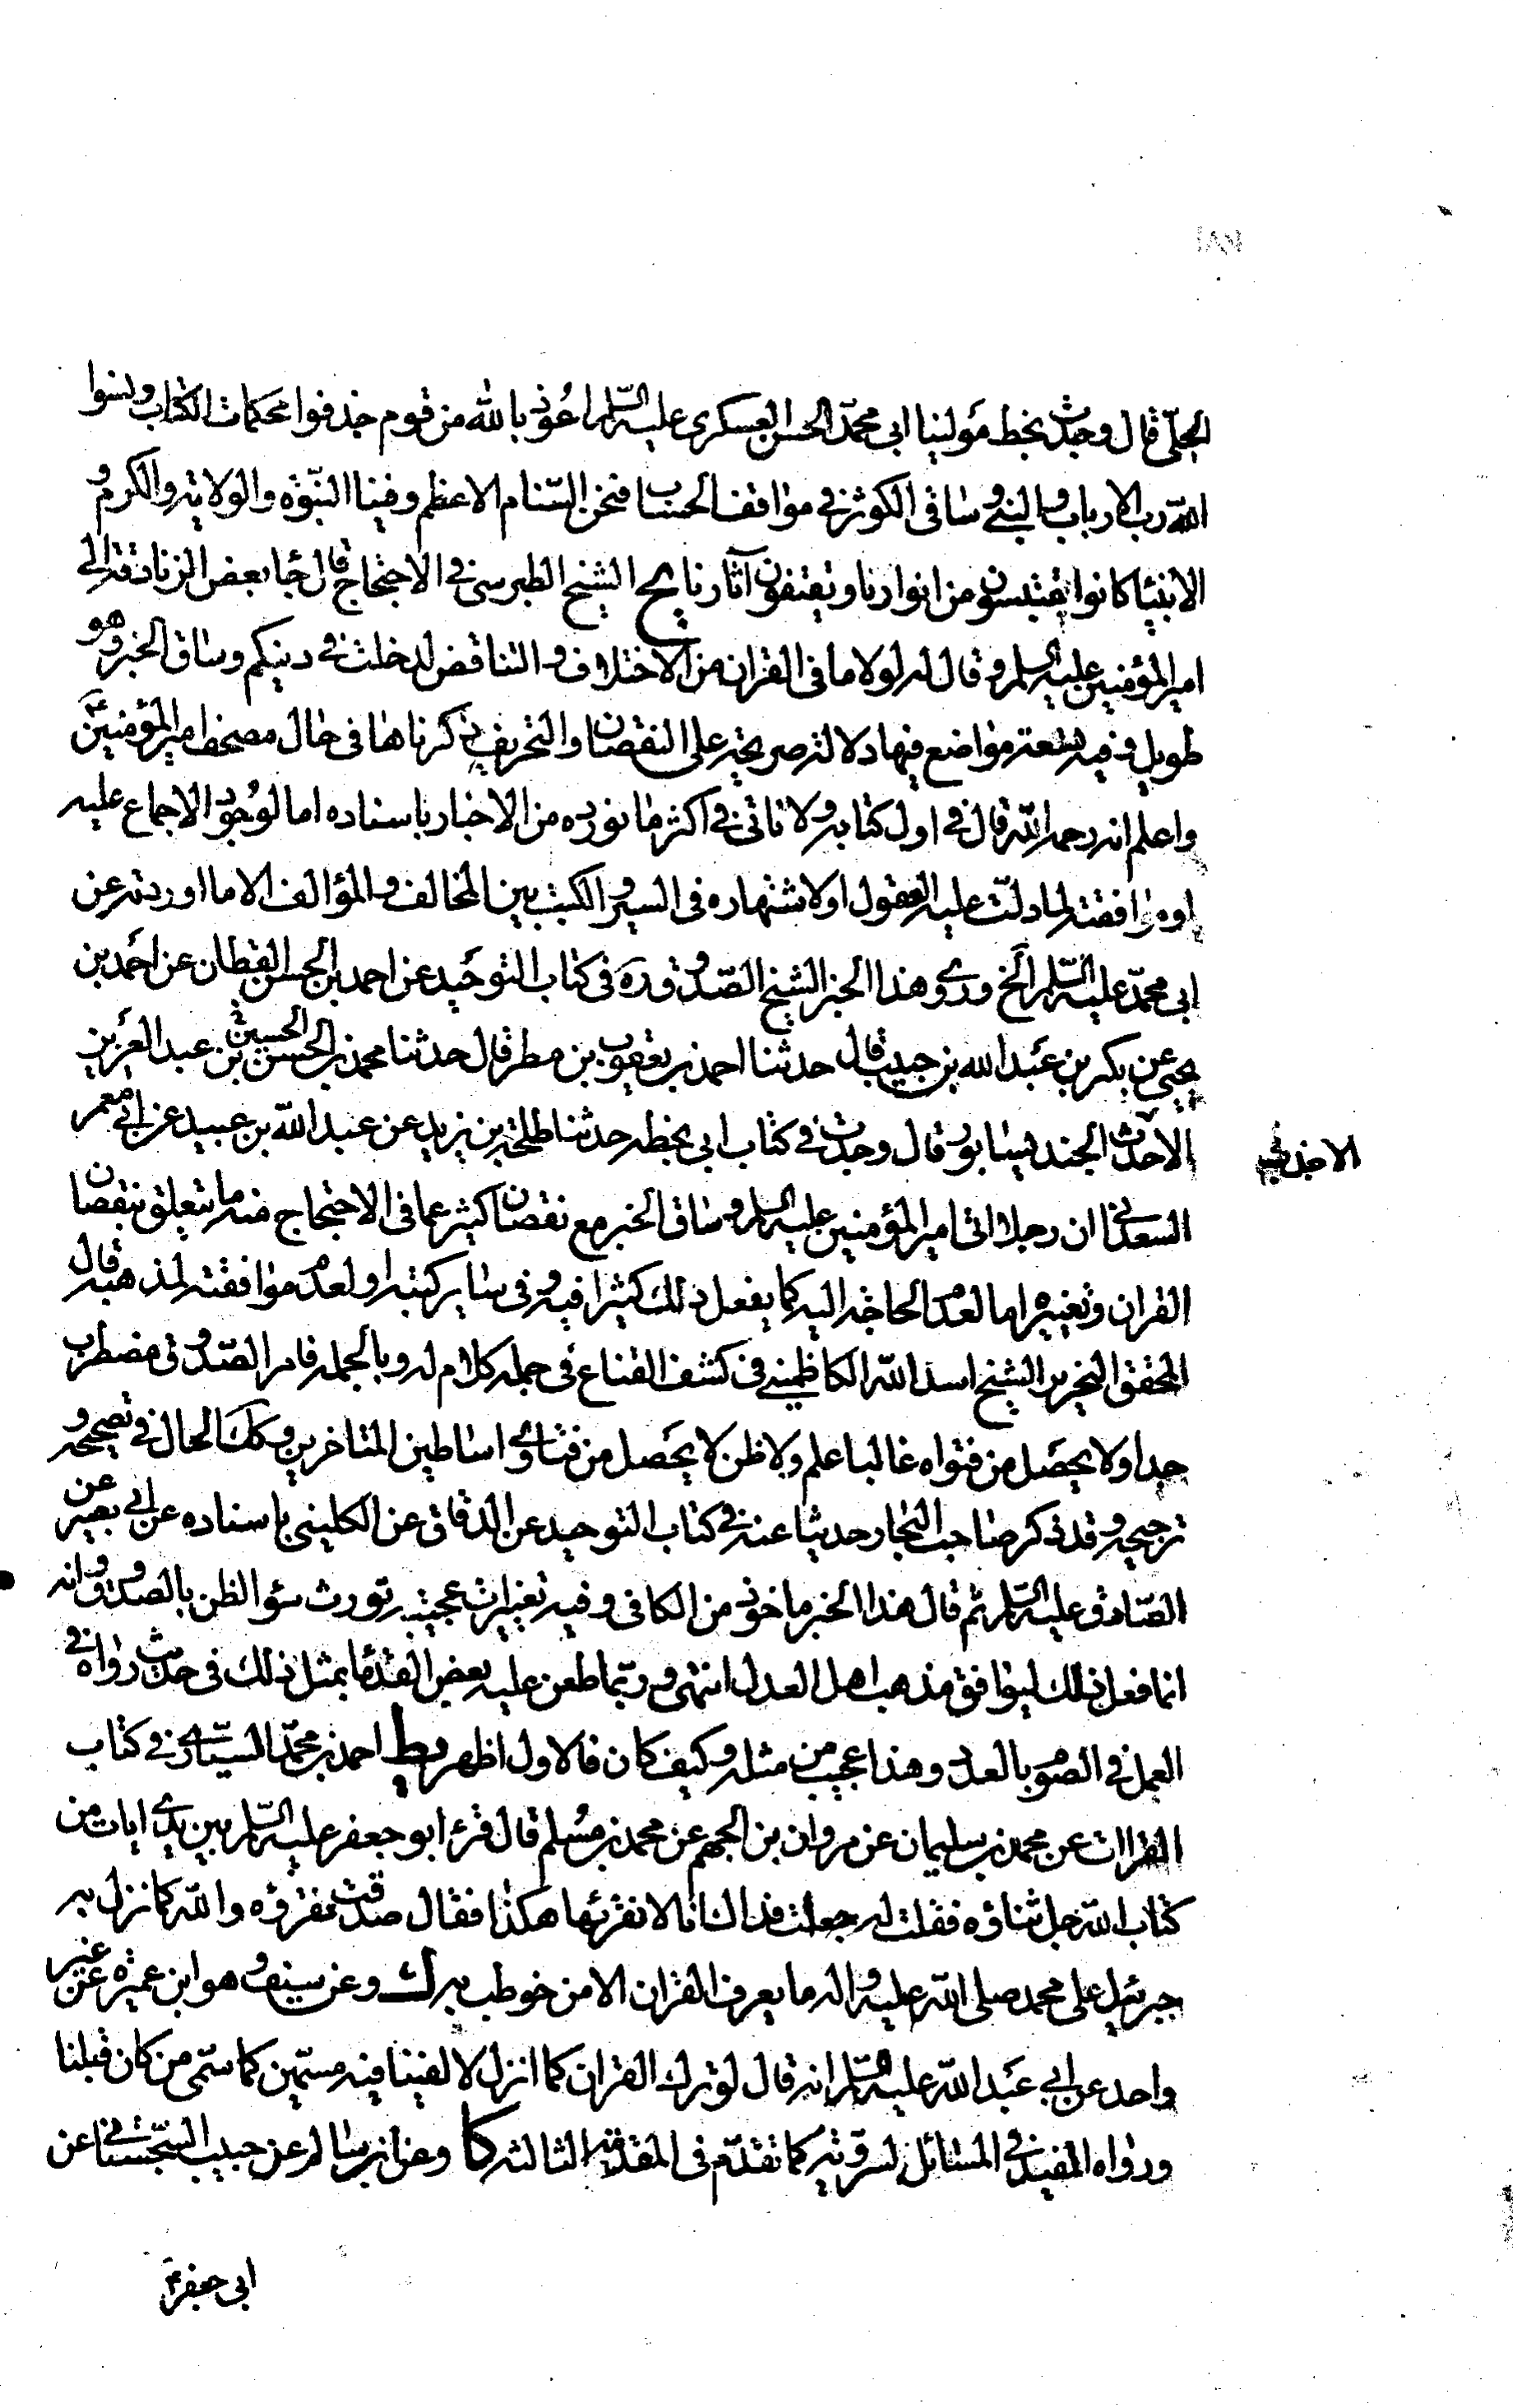 الجلّی قال وجدت بخط مولینا ابی محمّد الحسن العسکری علیه السّلام اعُوذ بالله من قوم حذفوا محکمات الکتاب ونسوا
اللّه رب الارباب والنبی وساقی الکوثر فی مواقف الحساب فنحن السّنام الاعظم وفینا النبّوة والولایة والکرم و
الانبیا کانوا یقتبسون من انوارنا ویقتفون آثارنا یح الشیخ الطبرسی فی الاحتجاج قال جاء بعض الزنادقة الی
امیر المؤمنین علیه السلم وقال له لولا ما فی القران من الاختلاف والتناقض لدخلت فی دینکم وساق الخبر وهو
طویل وفیه تسعة مواضع فیها دلالة صریحة علی النقصان والتحریف ذکرناها فی حال مصحف امیر المؤمنین ع
واعلم انه رحمه اللّه قال فی اول کتابه ولا ناتی فی اکثر ما نورده من الاخبار باسناده اما لوجود الاجماع علیه
او موافقته لما دلّت علیه العقول او لاشتهاره فی السیر والکتب بین المخالف والمؤالف الا ما اوردته عن
ابی محمّد علیه السّلم الخ وروی هذا الخبر الشیخ الصّدوق ره فی کتاب التوحید عن احمد بن الحسن القطان عن احمد بن
یحیی عن بکر بن عبد الله بن حبیب قال حدثنا احمد بن یعقوب بن مطر قال حدثنا محمد بن الحسن الحسین بن عبد العزیز
الاحدث الجندیسابوری قال وجدت فی کتاب ابی بخطه حدثنا طلحة بن یزید عن عبد اللّه بن عبید عن ابی معمر
الاحدث
السعدانی ان رجلا اتی امیر المؤمنین علیه السلم وساق الخبر مع نقصان کثیر عما فی الاحتجاج منه ما یتعلق بنقصان
القران وتغییره اما لعدم الحاجة الیه کما یفعل ذلک کثیرا فیه وفی سایر کتبه او لعدم موافقته لمذهبه قال
المحقق النحریر الشیخ اسد اللّه الکاظمینی فی کشف القناع فی جملة کلام له وبالجملة فامر الصّدوق مضطرب
جدا ولا یحصل من فتواه غالبا علم ولا ظن لا یحصل من فتاوی اساطین المتاخرین وکذلک الحال فی تصحیحه و
ترجیحه وقد ذکر صاحب البحار حدیثا عنه فی کتاب التوحید عن الدقاق عن الکلینی باسناده عن ابی بصیر عن
الصّادق علیه السّلم ثم قال هذا الخبر ماخوذ من الکافی وفیه تغییرات عجیبة تورث سؤ الظن بالصدوق وانه
انما فعل ذلک لیوافق مذهب اهل العدل انتهی وربّما طعن علیه بعض القدماء بمثل ذلک فی حدیث رواه فی
العمل فی الصّوم بالعدد وهذا عجیب من مثله وکیف کان فالاول اظهر یط احمد بن محمّد السیّاری فی کتاب
القراات عن محمد بن سلیمان عن مروان بن الجهم عن محمد بن مسلم قال قرء ابو جعفر علیه السّلم بین یدی ایات من
کتاب اللّه جل ثناؤه فقلت له جعلت فداک انا لا نقرئها هکذا فقال صدقت نقرؤه واللّه کما نزل به
جبرئیل علی محمد صلی اللّه علیه واله ما یعرف القران الا من خوطب به ک وعن سیف وهو ابن عمیرة عن غیر
واحد عن ابی عبد اللّه علیه السّلم انه قال لو ترک القران کما انزل لالفینا فیه مسمّین کما سمّی من کان قبلنا
ورواه المفید فی المسائل السرویة کما تقدّم فی المقدمة الثالثة کا وعن ابن سالم عن حبیب السّجستانی عن
ابی جعفر ع